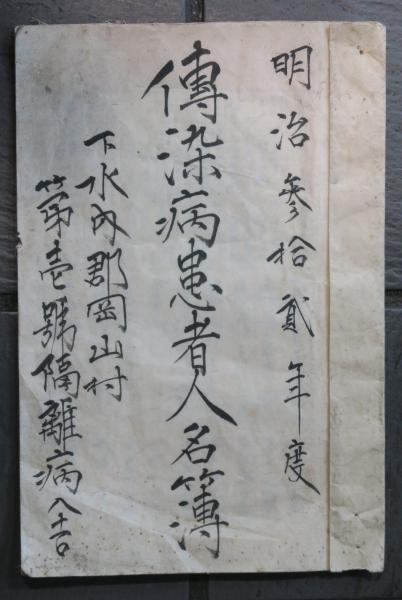 明治参拾貳年度
傳染病患者人名簿
下水内郡岡山村
第壱號隔離病舎